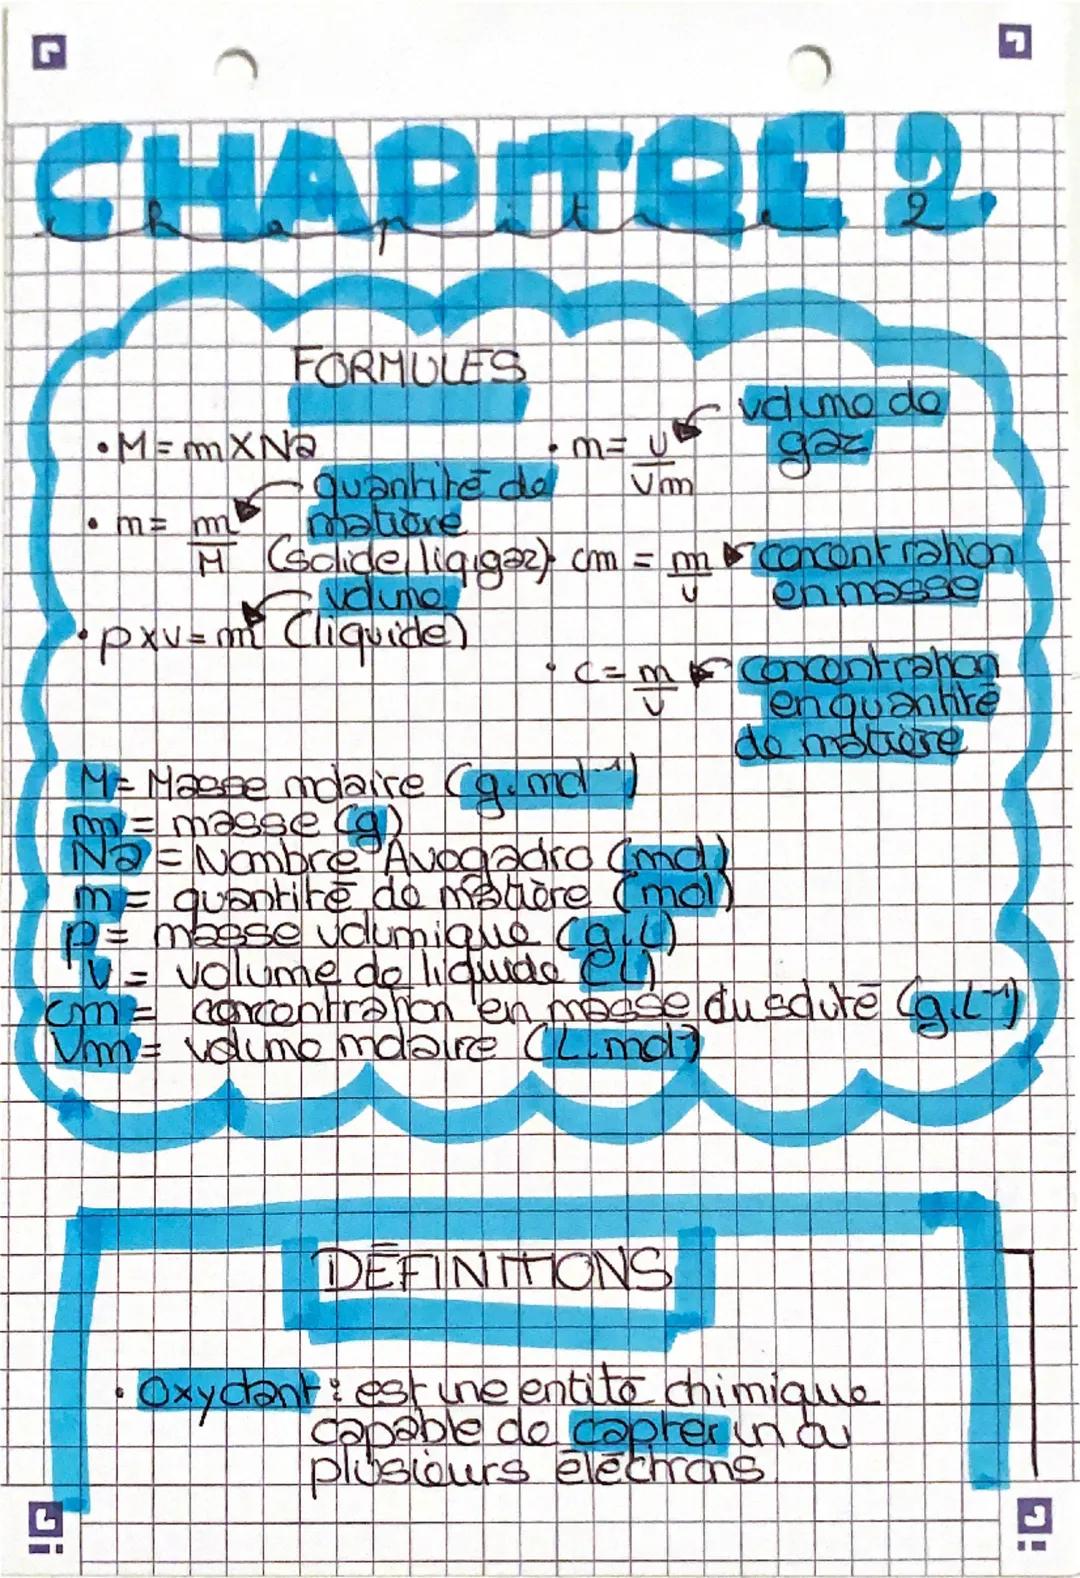 CHAPITRE 2
Chapitre 2
FORMULES
• M = m x Na
quantité de
matière
• m = m/M (solide, liq, gaz)
volume
(liquide)
• ρxv = m
• m = v/Vm
volume de
gaz
cm = m/v
concentration
en masse
• c = m/v
concentration
en quantité
de matière
M = Masse molaire (g.mol⁻¹)
m = masse (g)
Na = Nombre Avogadro (mol)
m = quantité de matière (mol)
ρ = masse volumique (g.L)
v = volume de liquide (L)
cm = concentration en masse du soluté (g.L⁻¹)
Vm = volume molaire (L.mol⁻¹)
DÉFINITIONS
• Oxydant : est une entité chimique
capable de capter un ou
plusieurs électrons